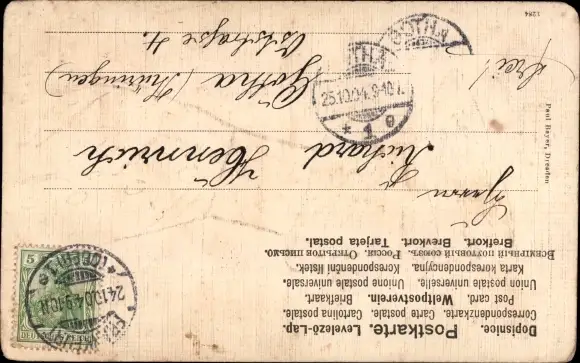 Dopisnice. Postkarte. Levelező-Lap.
Correspondenzkarte. Carte postale. Cartolina postale.
Post card. Weltpostverein. Briefkaart.
Union postale universelle. Unione postale universale.
Karta korespondencyjna. Korespondenční lístek.
Всемірный почтовый союзъ. Россія. Открытое письмо.
Brefkort. Brevkort. Tarjeta postal.
Herrn
Richard Hennrich
Gotha (Thüringen)
Oststrasse 11.
frei!
Paul Bayer, Dresden
1284
GOTHA
GOTHA
25.10.04. 9-10V.
* 1 e
24.10.04. 9-10N
5